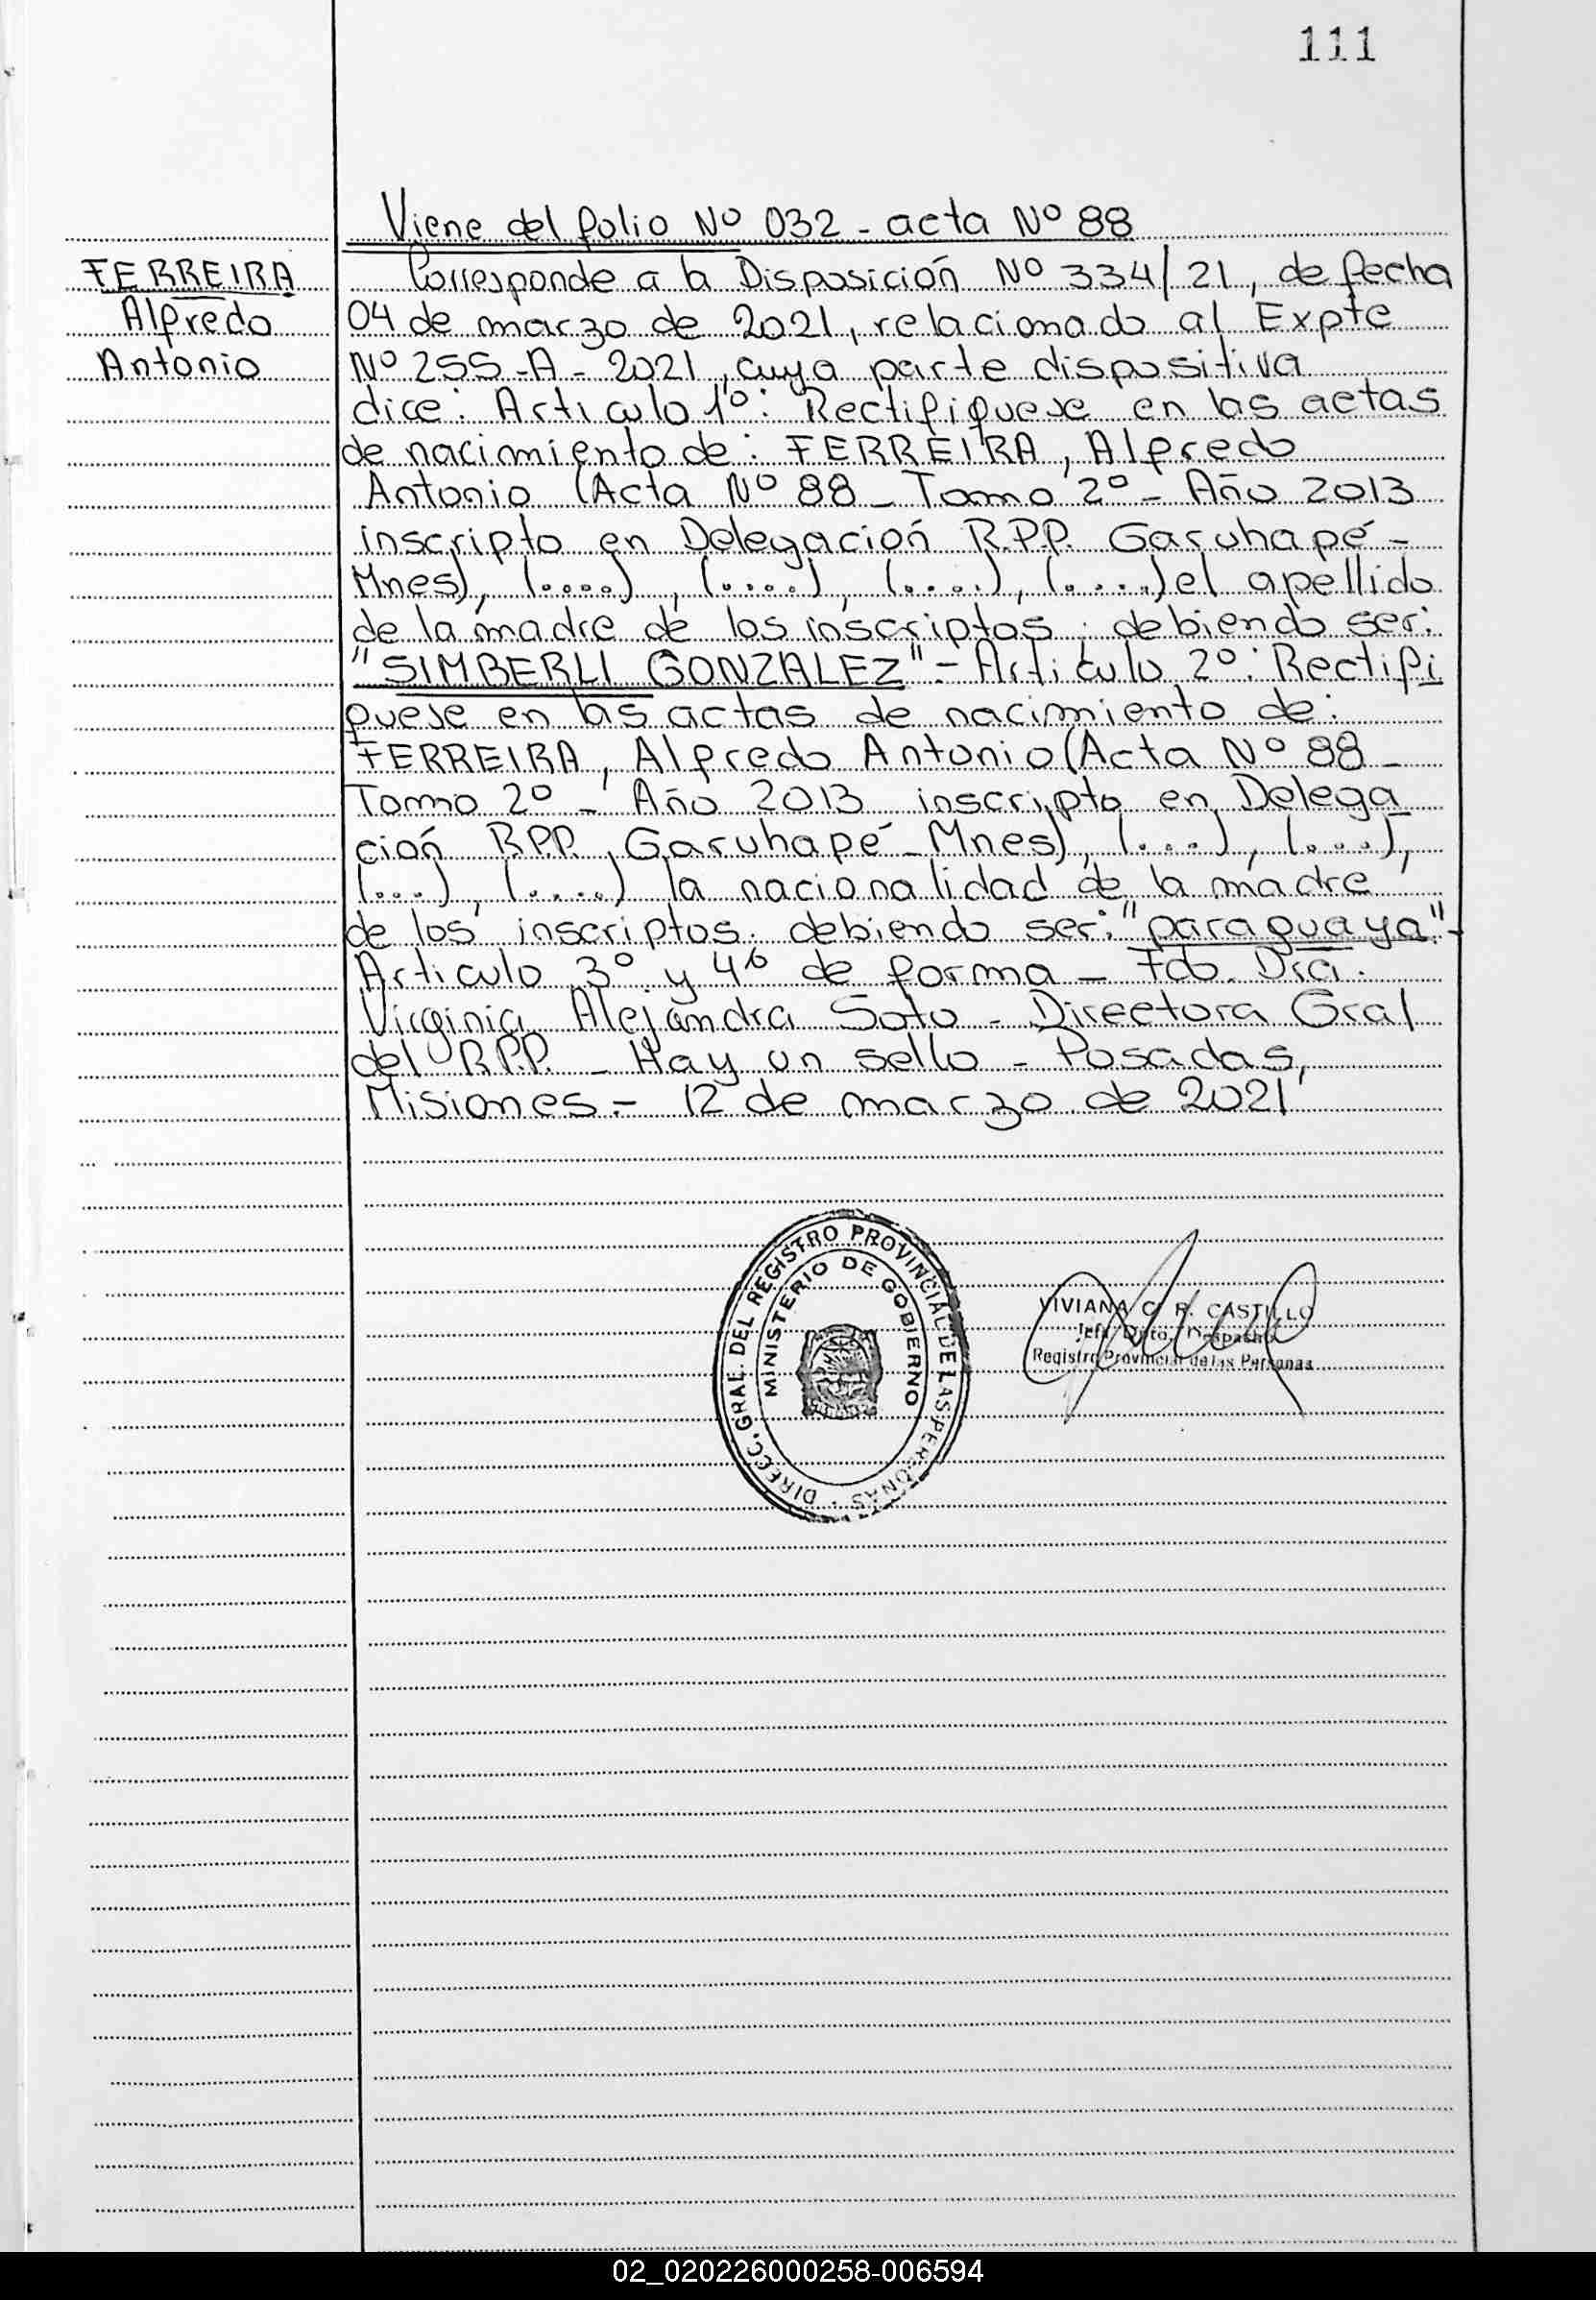 111
Viene del folio Nº 032 - acta Nº 88
FERREIRA
Alfredo
Antonio
Corresponde a la Disposición Nº 334/21, de fecha
04 de marzo de 2021, relacionado al Expte
Nº 255-A-2021, cuya parte dispositiva
dice: Articulo 1º: Rectifiquese en las actas
de nacimiento de: FERREIRA, Alfredo
Antonio (Acta Nº 88 - Tomo 2º - Año 2013
inscripto en Delegación R.P.P. Garuhapé -
Mnes), (....), (....), (....), (....) el apellido
de la madre de los inscriptos; debiendo ser:
"SIMBERLI GONZALEZ" - Articulo 2º: Rectifi
quese en las actas de nacimiento de:
FERREIRA, Alfredo Antonio (Acta Nº 88 -
Tomo 2º - Año 2013 inscripto en Delega
ción R.P.P. Garuhapé - Mnes), (....), (....),
(...), (.....) la nacionalidad de la madre
de los inscriptos; debiendo ser: "paraguaya".-
Articulo 3º y 4º de forma - Fdo. Dra.
Virginia Alejandra Soto - Directora Gral
del R.P.P. - Hay un sello - Posadas,
Misiones.- 12 de marzo de 2021
DIRECC. GRAL. DEL REGISTRO PROVINCIAL DE LAS PERSONAS
MINISTERIO DE GOBIERNO
VIVIANA C. R. CASTILLO
Jefa Dpto. Despacho
Registro Provincial de las Personas
02_020226000258-006594